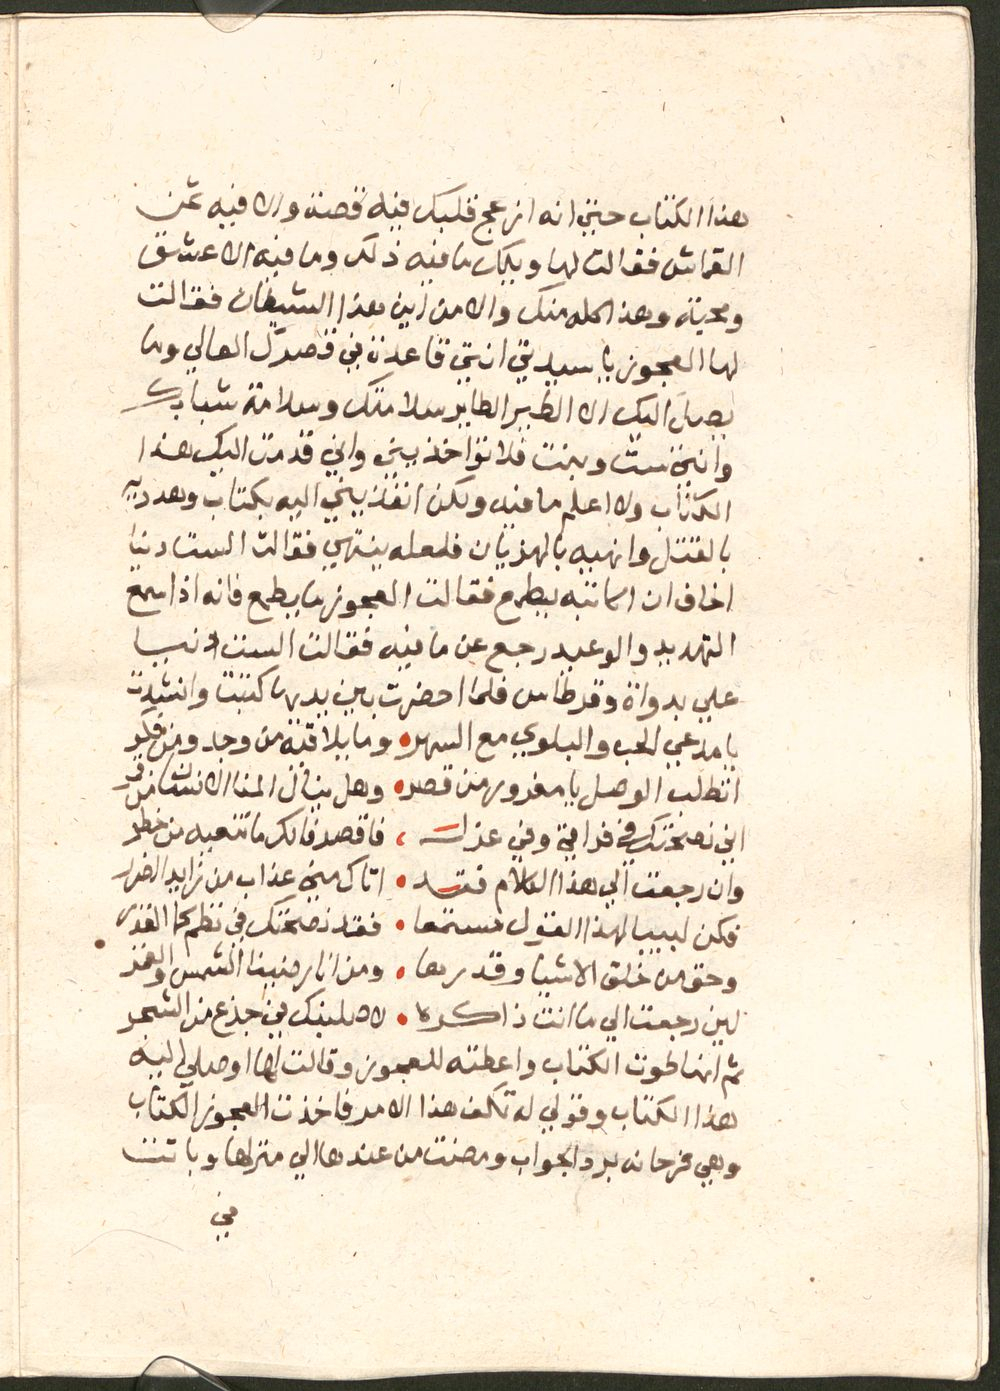 هذا الكتاب حتي انه ازعج قلبك فيه قصة والا فيه ثمن
القماش فقالت لها ويلك ما فيه ذلك وما فيه الا عشق
ومحبة وهذا كله منك والا من اين هذا الشيطان فقالت
لها العجوز يا سيدتي انتي قاعدة في قصرك العالي وما
يصل اليك الا الطير الطاير سلامتك وسلامة شبابك
وانتي ست وبنت فلا تواخذيني واني قدمت اليك هذا
الكتاب ولا اعلم ما فيه ولكن انفذيني اليه بكتاب وهدديه
بالقتل وانهيه بالهذيان فلعله ينتهي فقالت الست دنيا
اخاف ان اكاتبه يطمع فقالت العجوز ما يطمع فانه اذا سمع
التهديد والوعيد رجع عن ما فيه فقالت الست دنيا
علي بدواة وقرطاس فلما احضرت بين يديها كتبت وانشدت
يا مدعي الحب والبلوي مع السهر • وما يلاقيه من وجد ومن فكر
اتطلب الوصل يا مغرور من قمر • وهل ينال المنا الانسان من قمر
اني نصحتك في وفي ، فاقصد فانك ما تنعيه من خطر
وان رجعت الي هذا الكلام فقد • اتاك مني عذاب من زايد الضرر
فكن لبيبا لهذا القول مستمعا • فقد نصحتك في نظم كما
وحق من خلق الاشيا وقدرها • ومن انار ضيا الشمس والقمر
لين رجعت الي ما انت ذاكره • لاصلبنك في جذع من الشجر
ثم انها طوت الكتاب واعطته للعجوز وقالت لها اوصلي اليه
هذا الكتاب وقولي له تكف هذا الامر فاخذت العجوز الكتاب
وهي فرحانه برد الجواب ومضت من عندها الي منزلها وباتت
في